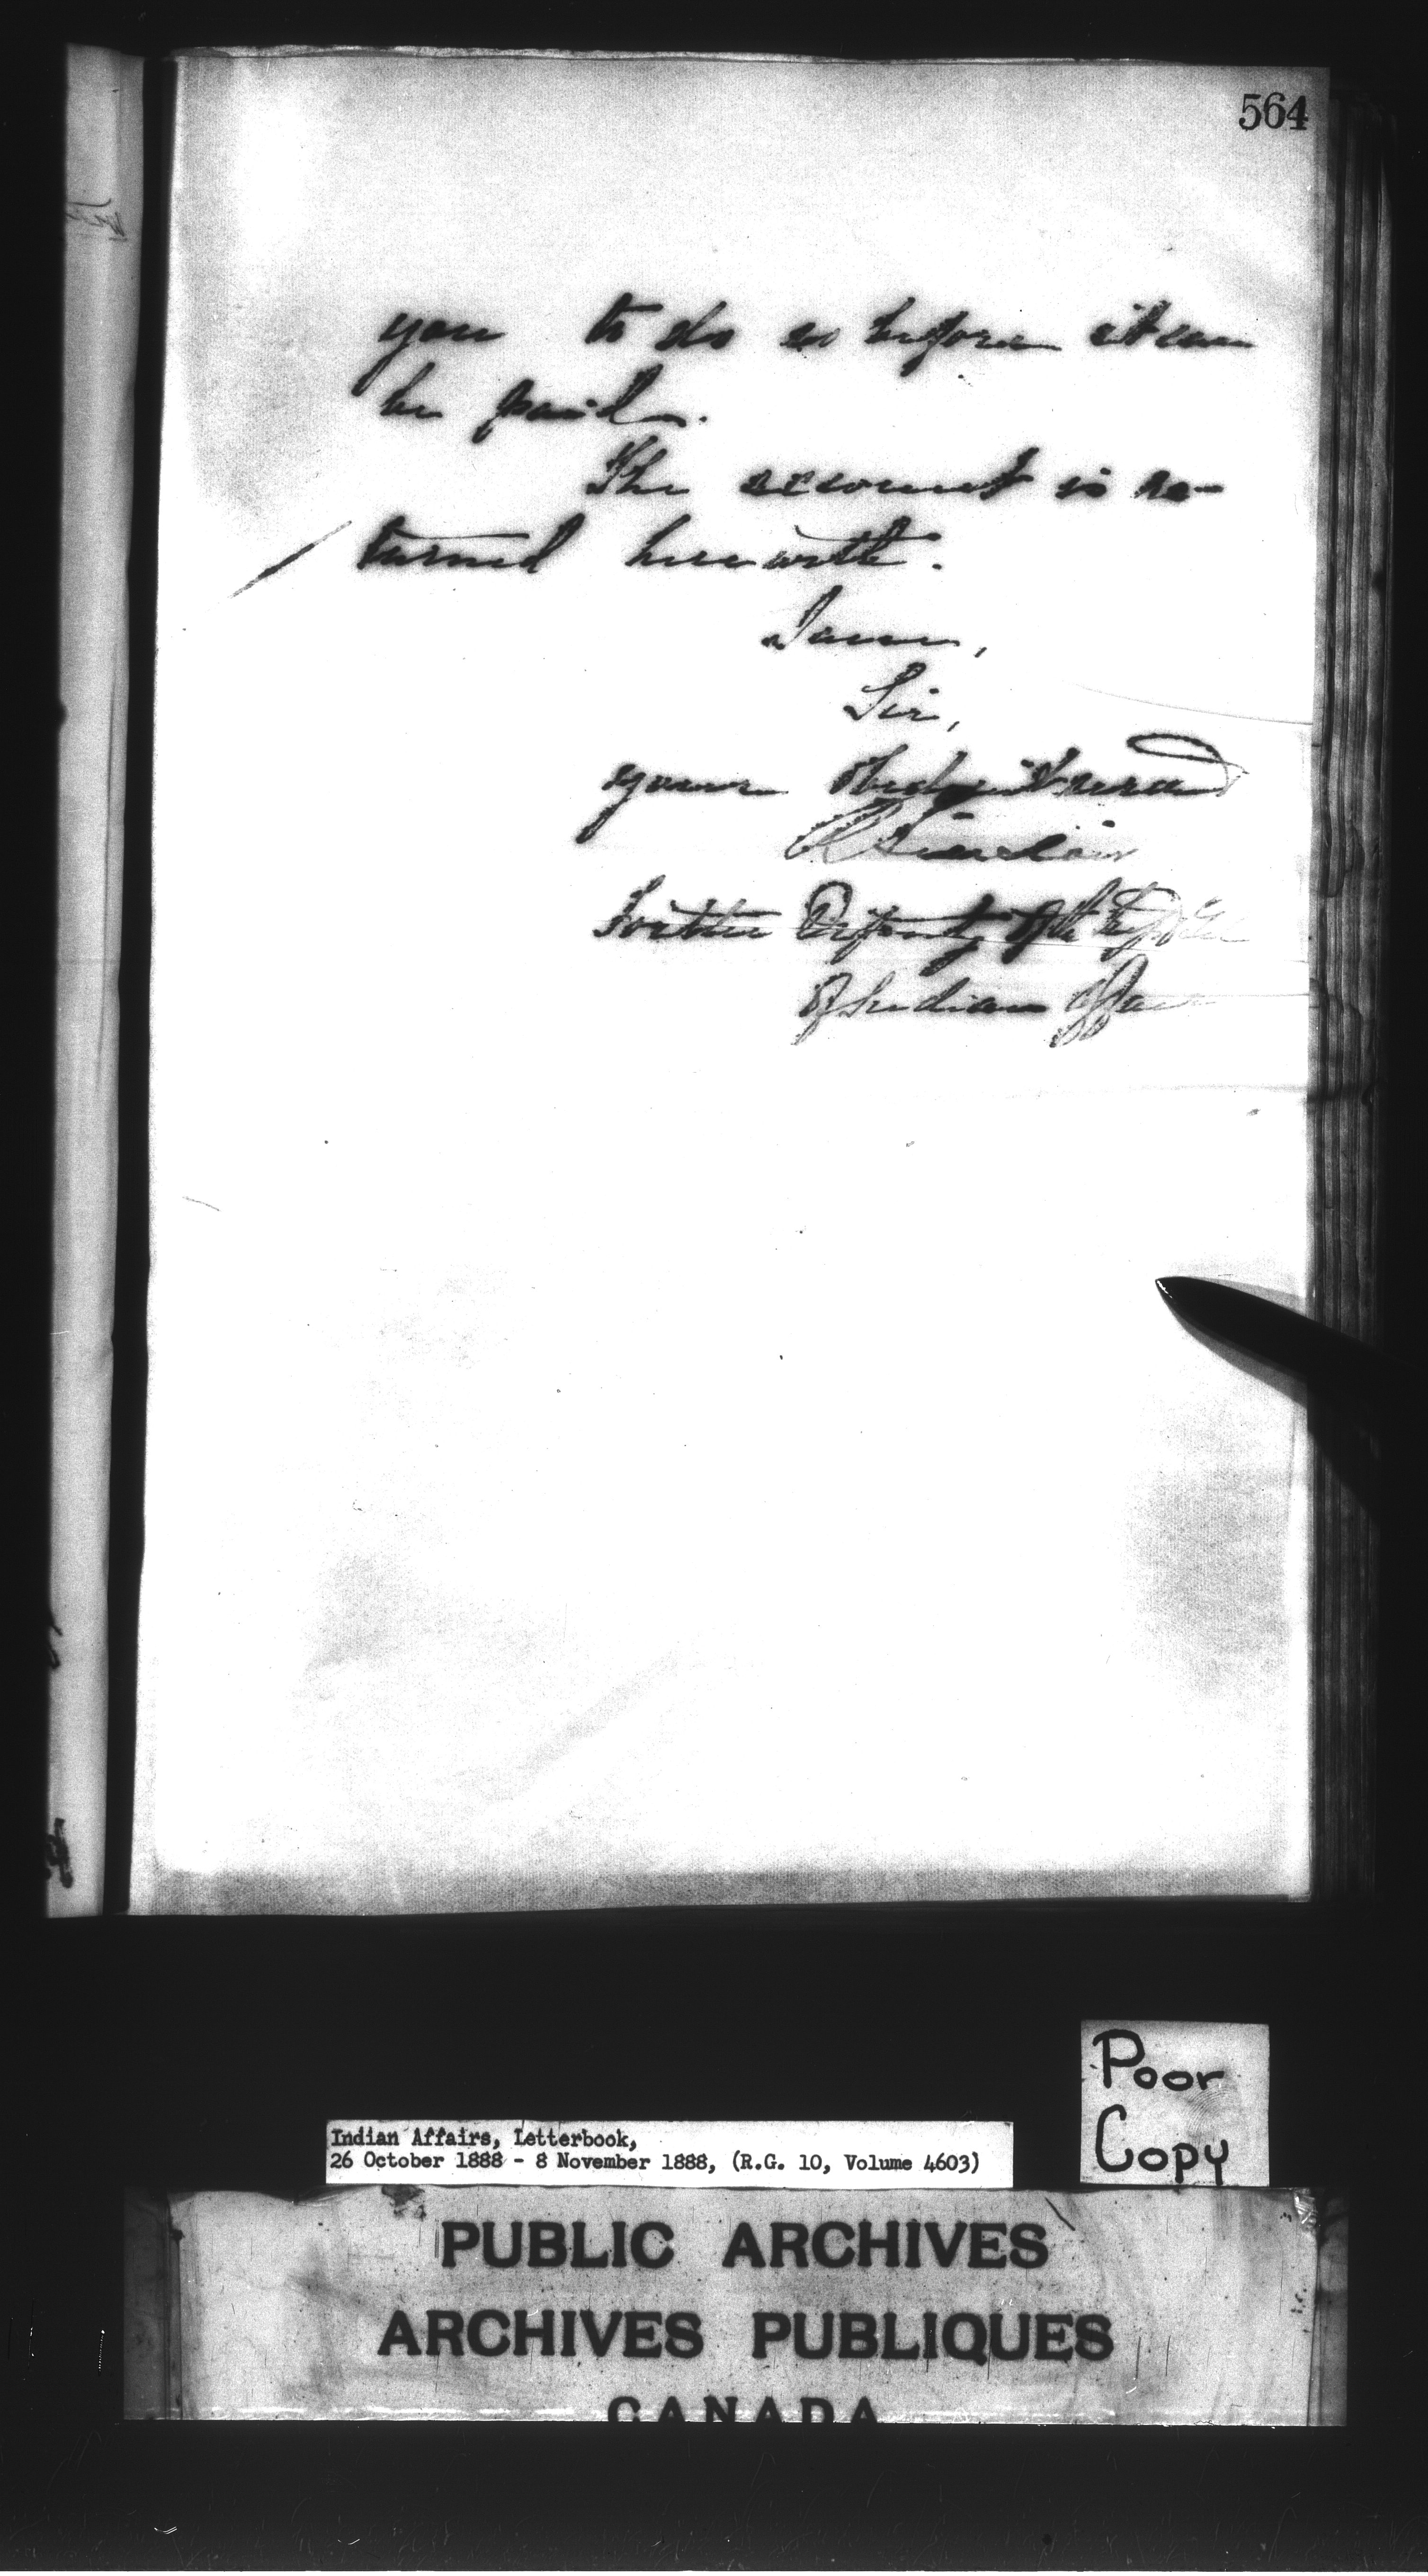 564
you to do so before it can
be paid.
The account is re-
turned herewith.
I am,
Sir,
Your Obedient Servant
R Sinclair
For the Deputy of the Supt Genl
of Indian Affairs
Poor
Copy
Indian Affairs, Letterbook,
26 October 1888 - 8 November 1888, (R.G. 10, Volume 4603)
PUBLIC ARCHIVES
ARCHIVES PUBLIQUES
CANADA